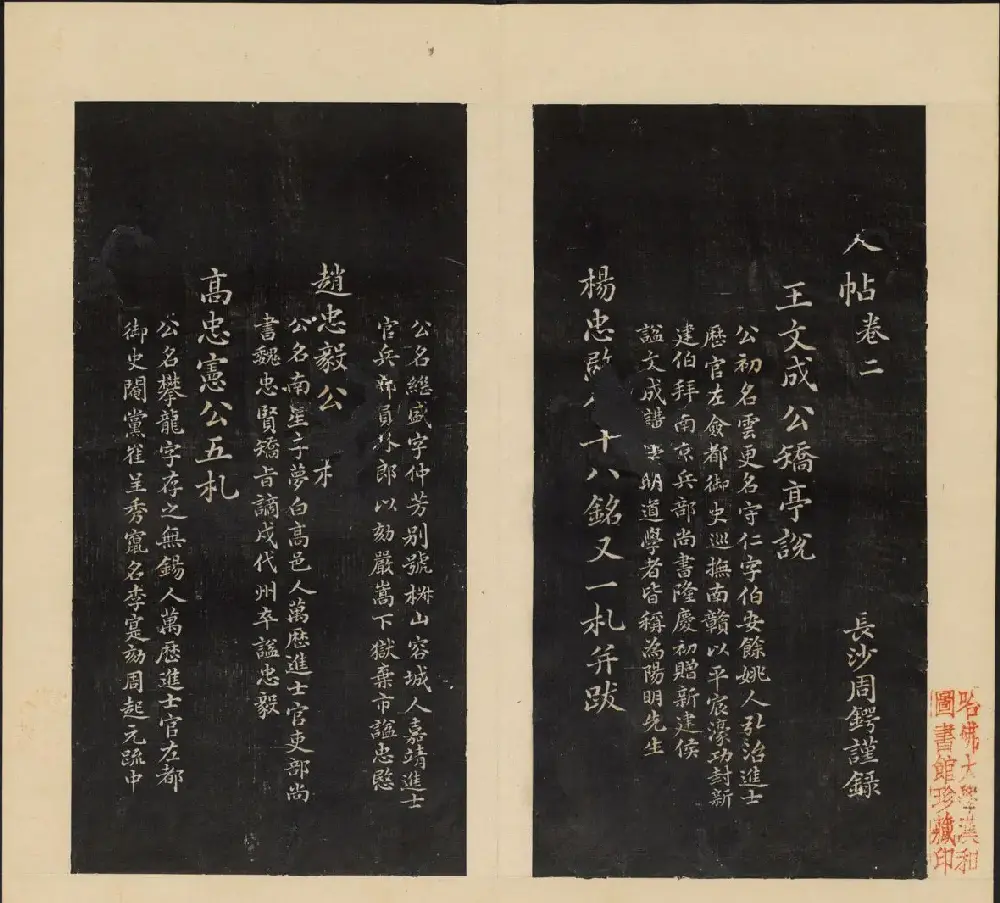 人帖卷二
長沙周鍔謹錄
王文成公矯亭說
公初名雲更名守仁字伯安餘姚人弘治進士
歷官左僉都御史巡撫南贛以平宸濠功封新
建伯拜南京兵部尚書隆慶初贈新建侯
謚文成講明道學者皆稱為陽明先生
楊忠愍公十八銘又一札并跋
公名繼盛字仲芳别號椒山容城人嘉靖進士
官兵部員外郎以劾嚴嵩下獄棄市謚忠愍
趙忠毅公 札
公名南星字夢白高邑人萬歷進士官吏部尚
書魏忠賢矯旨謫戍代州卒謚忠毅
高忠憲公五札
公名攀龍字存之無錫人萬歷進士官左都
御史閹黨崔呈秀竄名李寔劾周起元疏中
哈佛大學漢和
圖書館珍藏印